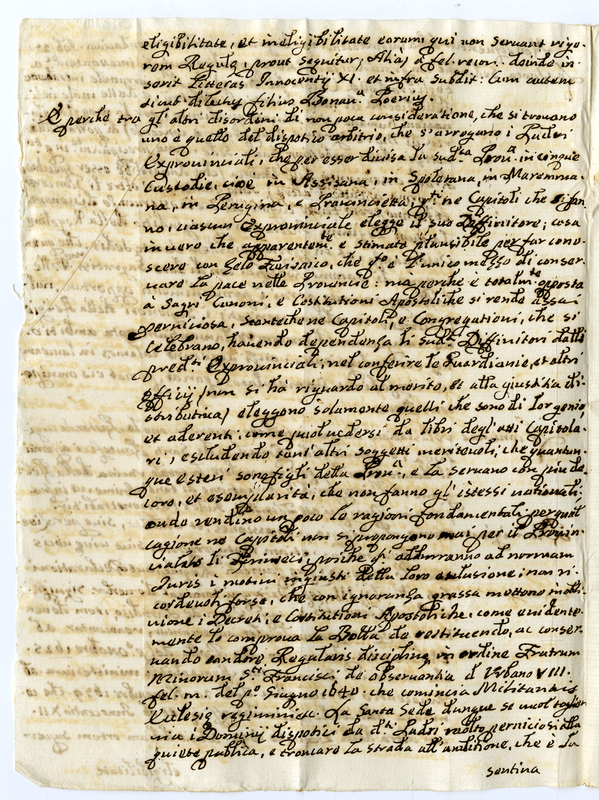 eligibilitate, et ineligibilitate eorum qui non servant rigo-
rem Regulę, prout sequitur, Alias à fel. recor. deinde in-
serit Litteras Innocentij XI. et infra subdit: Cum autem
sicut dilectus filius Bonau.ᵃ
E perche tra gl'altri disordini di non poca consideratione, che si trovano
uno è quello del dispotico arbitrio, che s'arrogano i Padri
Exprovinciali, che per esser divisa la sud.ᵗᵃ Prov.ᵃ in cinque
Custodie, cioè in Assisana, in Spoletana, in Maremma-
na, in Perugina, e ne Capitoli che si fan-
no, ciascun Exprovinciale elegge il suo Diffinitore; cosa
in vero che apparentem.ᵗᵉ è stimata plausibile per far cono-
scere con Zelo che q.ᵒ è l'unico mezzo di conser-
vare la pace nelle Provincie: ma perche è totalm.ᵗᵉ opposta
a Sagri Canoni, e Costitutioni Apostoliche si rende assai
perniciosa, stante che ne Capitoli, e Congregationi, che si
celebrano, havendo dependenza li sud.ᵗⁱ Diffinitori dalli
pred.ᵗⁱ Exprovinciali; nel conferire le Guardianie, et altri
officij (non si hà riguardo al merito, et alla giustitia di-
stributiva) eleggono solamente quelli che sono di lor genio,
et aderenti, come può vedersi da libri degl'atti Capitola-
ri, escludendo tant'altri soggetti meritevoli, che quantun-
que esteri sono figli della Prov.ᵃ, e la servano con più de-
coro, et esemplarità, che non fanno gl'istessi nationali;
onde rendino un poco le ragioni fondamentali per qual
cagione ne Capitoli non si propongono mai per il Provin-
cialato li poiche si addurranno ad normam
Iuris i motivi ingiusti della loro esclusione; non ri-
cordevoli forse, che con ignoranza grassa mettono in obli-
vione i Decreti, e Costitutioni Apostoliche, come evidente-
mente lo comprova la Bolla de restituendo, ac conser-
vando candore Regularis disciplinę in ordine Fratrum
Minorum S.ᵗⁱ Francisci de observantia d' Urbano VIII.
fel. m. del p.ᵒ Giugno 1640. che comincia Militantis
Ecclesię regimini &c. La Santa Sede dunque se vuol toglier
via i Dominij dispotici da d.ᵗⁱ Padri molto perniciosi alla
quiete publica, e troncare la strada all'ambitione, che è la
sentina